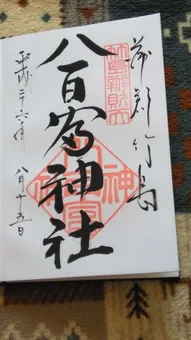 蒲郡竹島
八百富神社
平成二十六年
八月十五日